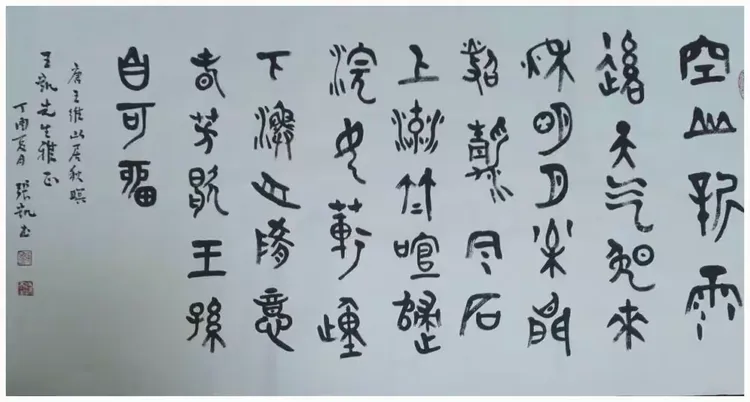 空山新雨
後天气晚来
秋明月松間
照清泉石
上流竹喧歸
浣女蓮動
下漁舟隨意
春芳歇王孫
自可留
唐王維山居秋暝
王凱先生雅正
丁酉夏月 張凱书